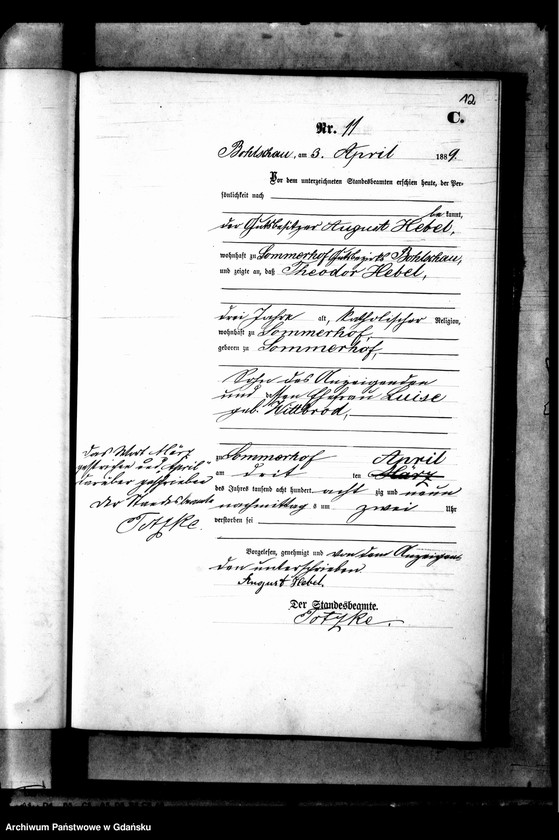 12
C.
Nr. 11
Bohlschau, am 3. April 1889.
Vor dem unterzeichneten Standesbeamten erschien heute, der Per-
sönlichkeit nach
be kannt,
der Gutsbesitzer August Hebel,
wohnhaft zu Sommerhof Gutsbezirks Bohlschau,
und zeigte an, daß Theodor Hebel,
drei Jahre alt, katholischer Religion,
wohnhaft zu Sommerhof,
geboren zu Sommerhof,
Sohn des Anzeigenden
und dessen Ehefrau Luise
geb. Wittbrod,
zu Sommerhof April
am drit ten März
des Jahres tausend acht hundert acht zig und neun
nachmittag s um zwei Uhr
verstorben sei
Vorgelesen, genehmigt und von dem Anzeigen-
den unterschrieben.
August Hebel.
Der Standesbeamte.
Totzke.
Das Wort März
gestrichen und „April“
darüber geschrieben
Der Standesbeamte
Totzke.
Archiwum Państwowe w Gdańsku